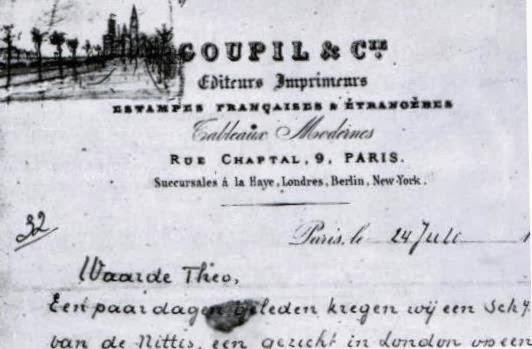 GOUPIL & CIE
Editeurs Imprimeurs
ESTAMPES FRANÇAISES & ÉTRANGÈRES
Tableaux Modernes
RUE CHAPTAL, 9, PARIS.
Succursales à la Haye, Londres, Berlin, New-York.
32
Paris, le 24 Juli 1
Waarde Theo,
Een paar dagen geleden kregen wij een sch
van de Nittis, een gezicht in London op een